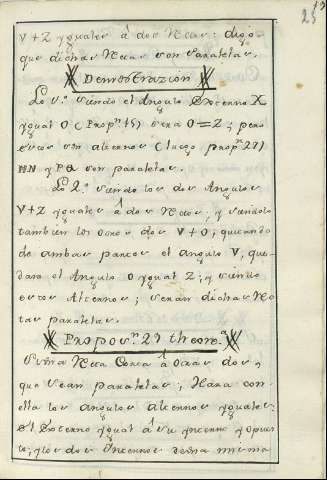 23
V + Z yguales â dos Rectos: digo,
que dichas Rectas son paralelas.
Demostrazion
Lo 1.º siendo el Angulo Externo X
ygual O (Propⁿ 15) sera O = Z; pero
estos son alternos (luego propⁿ 27)
MN y PQ son paralelas.
Lo 2.º siendo los dos Angulos
V + Z yguales â dos Rectos, y siendolo
tambien los otros dos V + O; quitando
de ambas partes el angulo V, que-
dara el Angulo O ygual Z; y siendo
estos Alternos; seran dichas Rec
tas paralelas.
Propos.ⁿ 29 theom.ª
Si una Recta Corta â otras dos,
que sean paralelas; Hara con
ella los angulos alternos yguales:
el Externo ygual â su ynterno y opues
to; y los dos Internos de una misma